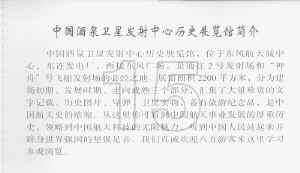 中国酒泉卫星发射中心历史展览馆简介
中国酒泉卫星发射中心历史展览馆，位于东风航天城中
心，东连发电厂，西接东风广场，是通往2号发射场和“神
舟”号飞船发射场的必经之地。展馆面积2200平方米，分为建
场初期、发展时期、走向成熟三个部分，汇集了大量珍贵的文
字记载、历史图片、星弹、卫星实物，备有旅游纪念品，是中
国航天史的浓缩。从这里你可看到中国航天事业发展的厚重历
史，领略到中国航天科技的无限魅力，听到中国人民站起来并
跻身世界强国的坚强足音。我们真诚欢迎八方游客来这里学习
参观浏览。